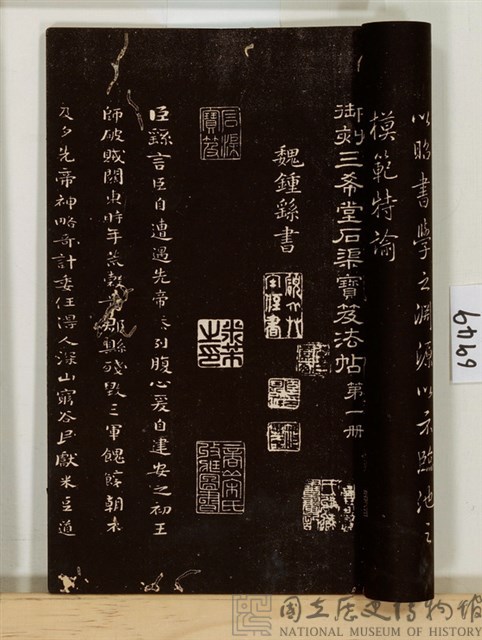 以昭書學之淵源以示臨池之
模範特諭
御刻三希堂石渠寶笈法帖第一册
魏鍾繇書
石渠寶笈
米芾之印
臣繇言臣自遭遇先帝忝列腹心爰自建安之初王
師破賊關東時年荒穀貴郡縣殘毀三軍餽饟朝不
及夕先帝神略奇計委任得人深山窮谷民獻米豆道
國立歷史博物館
NATIONAL MUSEUM OF HISTORY